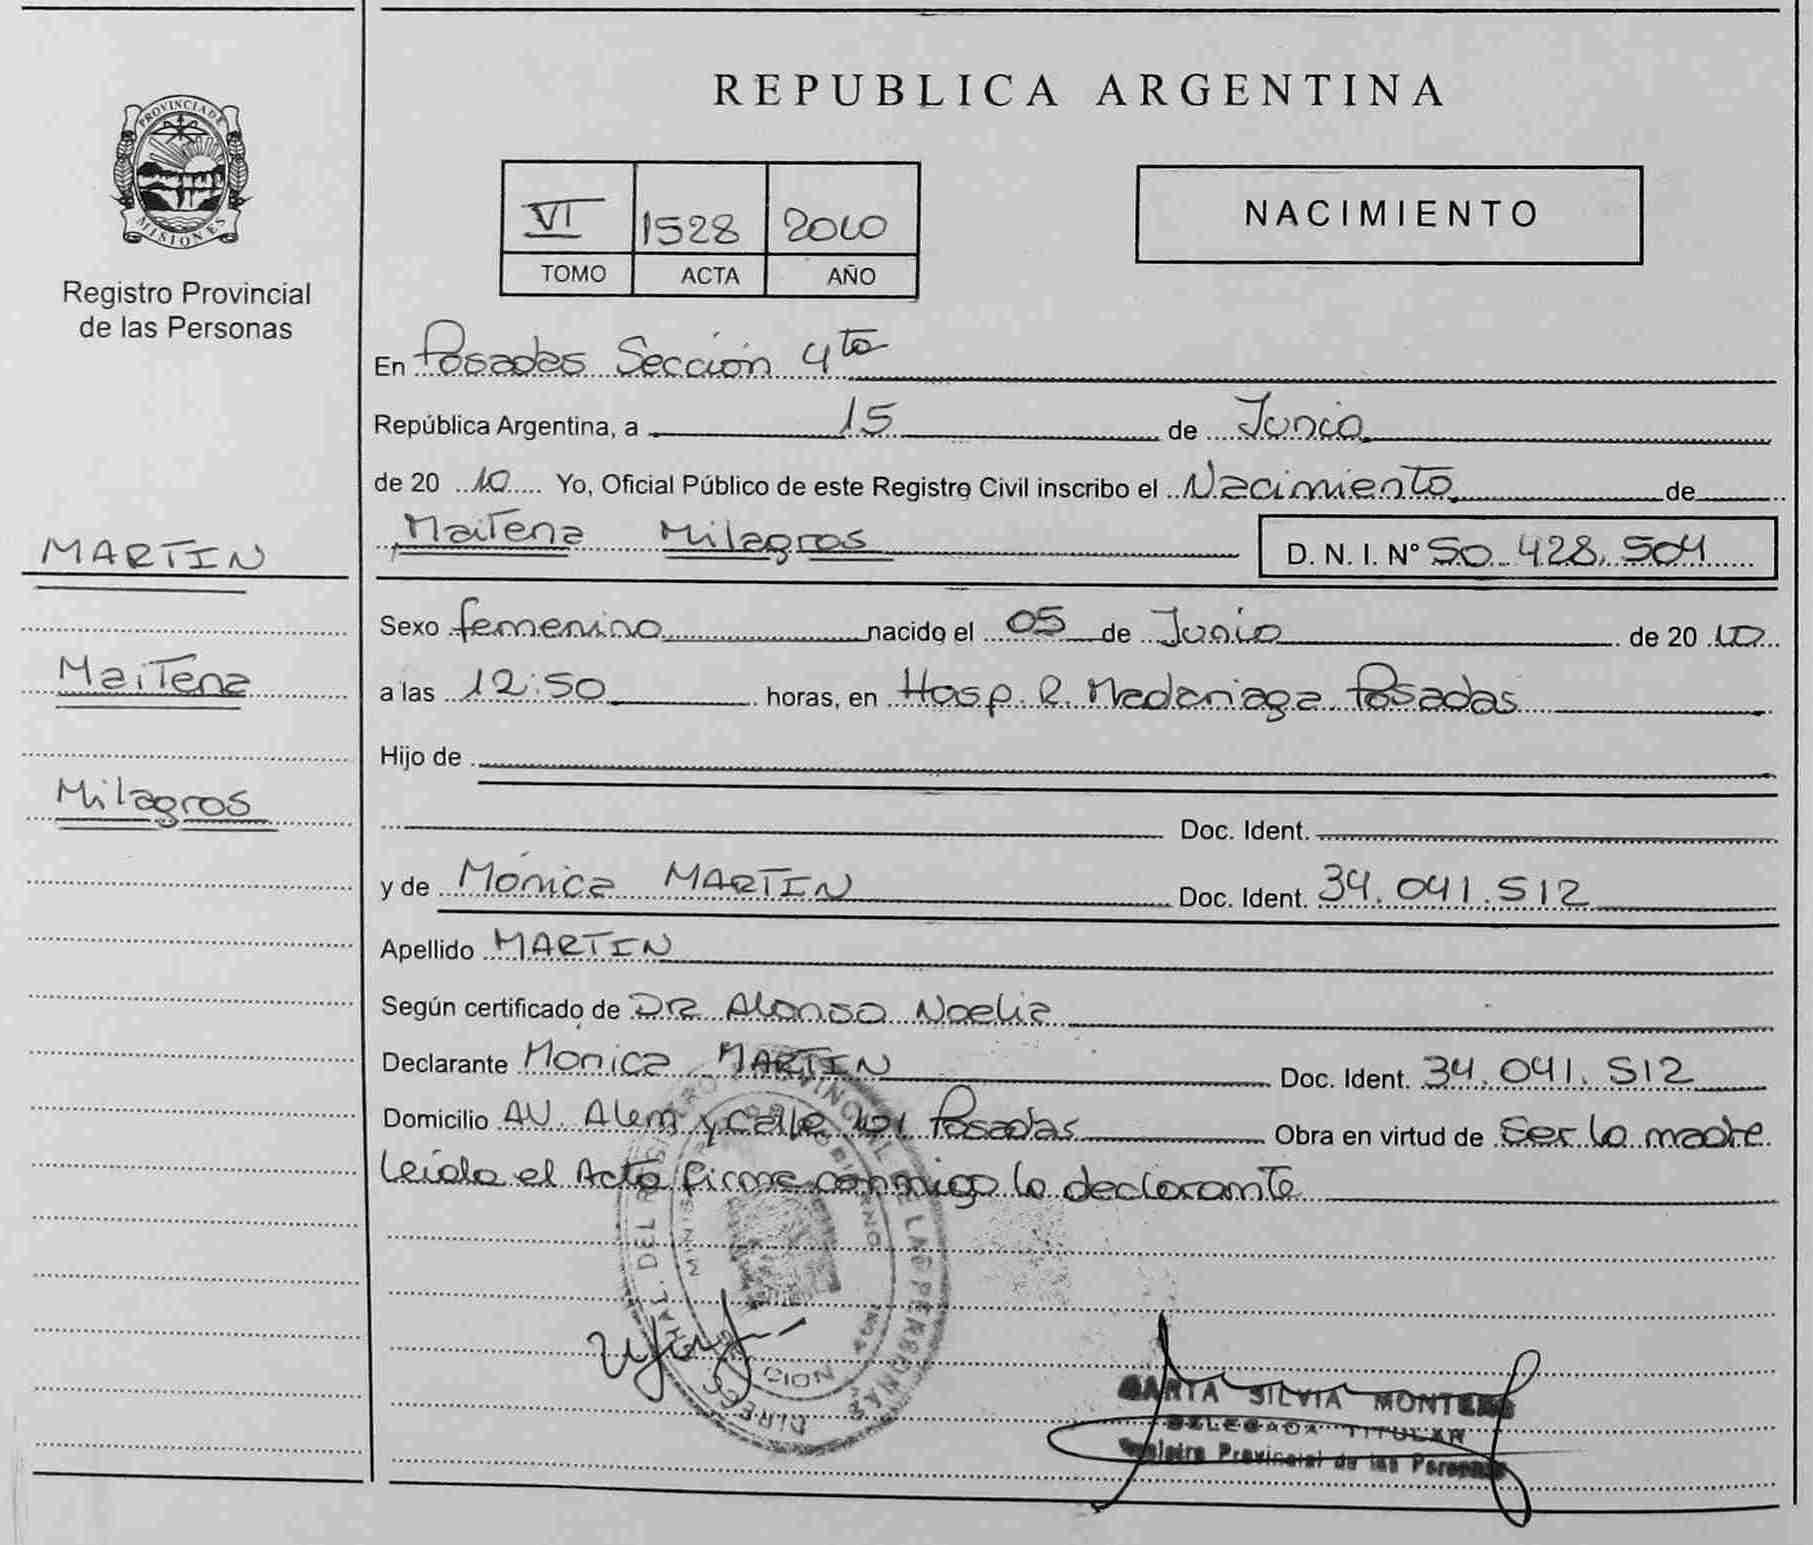 PROVINCIA DE
MISIONES
Registro Provincial
de las Personas
MARTIN
Maitena
Milagros
REPUBLICA ARGENTINA
VI 1528 2010
TOMO ACTA AÑO
NACIMIENTO
En Posadas Sección 4ta
República Argentina, a 15 de Junio
de 20 10 Yo, Oficial Público de este Registro Civil inscribo el Nacimiento de
Maitena Milagros D. N. I. Nº 50.428.504
Sexo femenino nacido el 05 de Junio de 20 10
a las 12:50 horas, en Hosp. R. Madariaga Posadas
Hijo de
Doc. Ident.
y de Mónica MARTIN Doc. Ident. 34.041.512
Apellido MARTIN
Según certificado de DRA Alonso Noelia
Declarante Monica MARTIN Doc. Ident. 34.041.512
Domicilio AV. Alem y calle 101 Posadas Obra en virtud de Ser la madre
leida el Acta firma conmigo la declarante
SILVIA MONTERO
DELEGADA TITULAR
Registro Provincial de las Personas